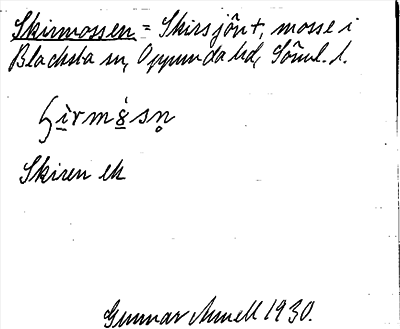 Skirmossen = Skirsjön †, mosse i
Blacksta sn, Oppunda hd, Söml. l.
Skiren ek
Gunnar Arnell 1930.